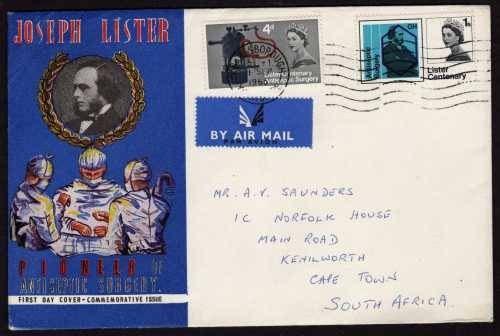 JOSEPH LISTER
PIONEER OF
ANTISEPTIC SURGERY.
FIRST DAY COVER - COMMEMORATIVE ISSUE
4d
Lister Centenary
Antiseptic Surgery
Antiseptic
Surgery
OH
1s
Lister
Centenary
BY AIR MAIL
PAR AVION
MR. A.V. SAUNDERS
1C NORFOLK HOUSE
MAIN ROAD
KENILWORTH
CAPE TOWN
SOUTH AFRICA.